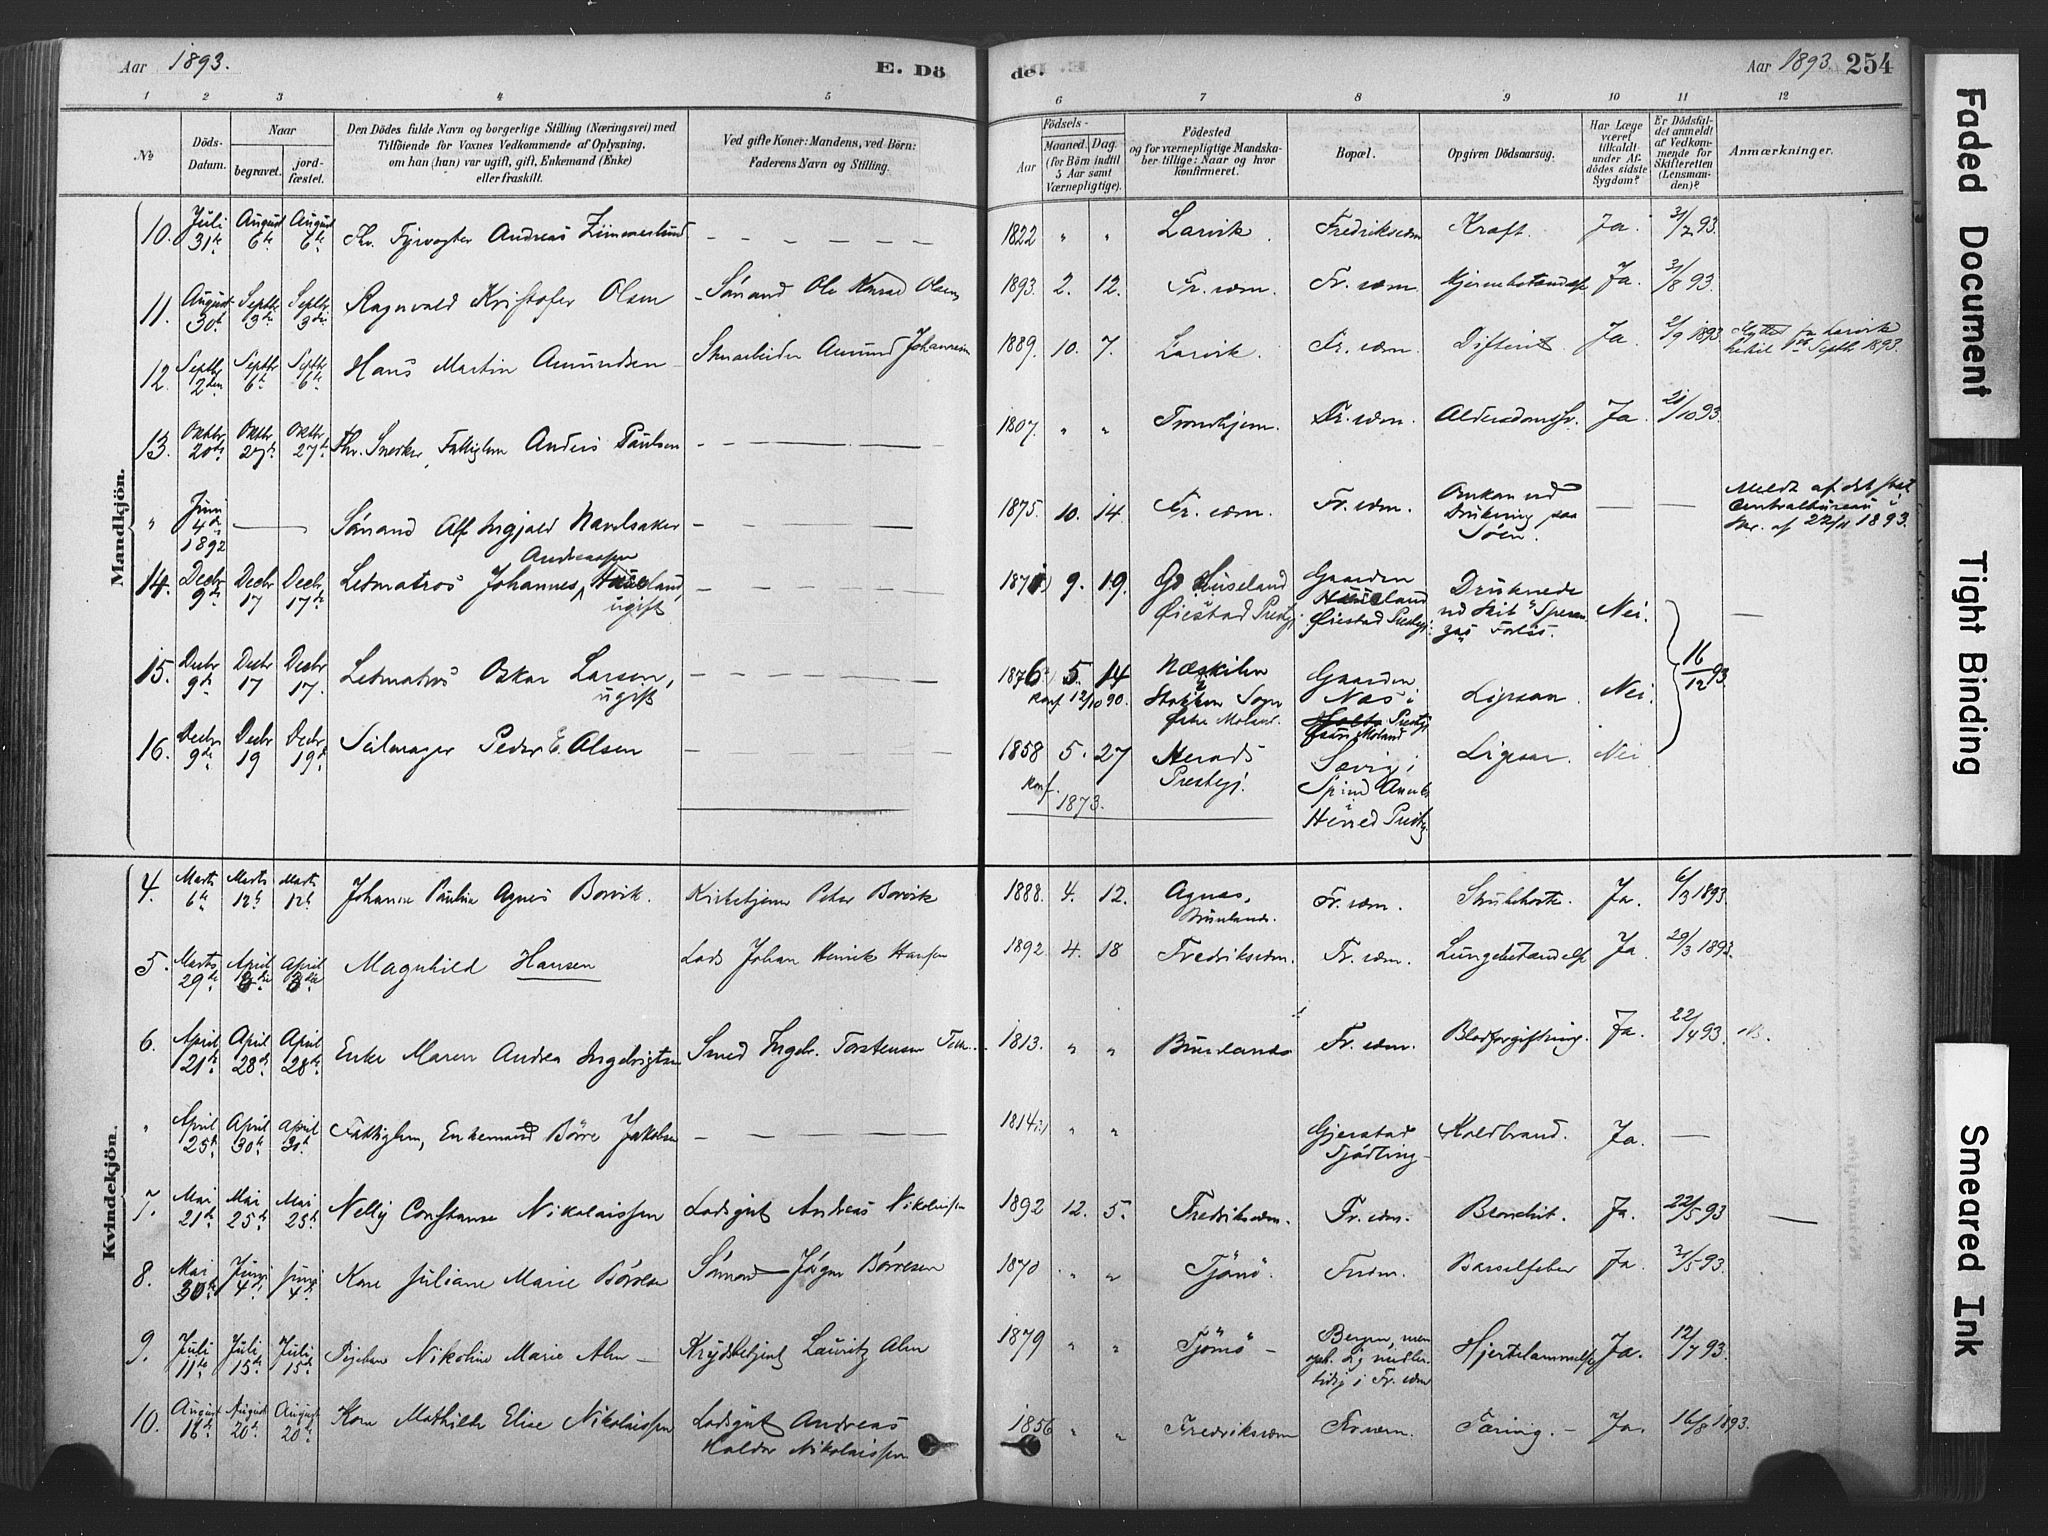 Aar 1893. E. Dö
de. Aar 1893. 254
1 2 3 4 5
6 7 8 9 10 11 12
No
Döds-Datum.
Naar
begravet.
jordfæstet.
Den Dödes fulde Navn og borgerlige Stilling (Næringsvei) med
Tilföiende for Voxnes Vedkommende af Oplysning,
om han (hun) var ugift, gift, Enkemand (Enke)
eller fraskilt.
Ved gifte Koner: Mandens, ved Börn:
Faderens Navn og Stilling.
Födsels-
Aar
Maaned. Dag.
(for Börn indtil
5 Aar samt
Værnepligtige).
Födested
og for værnepligtige Mandska-
ber tillige: Naar og hvor
konfirmeret.
Bopæl.
Opgiven Dödsaarsag.
Har Læge
været
tilkaldt
under Af-
dödes sidste
Sygdom?
Er Dödsfal-
det anmeldt
af Vedkom-
mende for
Skifteretten
(Lensman-
den)?
Anmærkninger.
Mandkjön.
10. Juli 31te August 6te August 6te Fhv. Fyrvogter Andreas Zimmerlund 1822 " " Larvik. Fredriksværn Kræft. Ja. 31/7 93.
11. August 30te Septbr 3die Septbr 3die Ragnvald Kristofer Olsen Sömand Ole Konrad Olsen 1893. 2. 12. Fr. værn. Fr. værn. Hjernebetændelse Ja 31/8 93.
12. Septbr 2den Septbr 6te Septbr 6te Hans Martin Amundsen Stenarbeider Amund Johannesen 1889. 10. 7. Larvik. Fr. værn. Difterit Ja. 2/9 1893. Flyttet fra Larvik hertil Septb 1893.
13. Oktbr 20de Oktbr 27de Oktbr 27de Fhv. Snedker, Fattiglem Anders Paulsen 1807. " " Trondhjem. Fr. værn. Alderdomssv. Ja. 21/10 93.
" Juni 4de 1892 Sömand Alf Ingjald Navelsaker 1875. 10. 14 Fr. værn. Fr. værn. Omkom ved Drukning paa Söen. Meldt af det stat. Centralbureau i Skr. af 22/11 1893.
14. Decbr 9de Decbr 17 Decbr 17de Letmatros Johannes Andreassen Huseland, ugift 187 9. 19. Gd Luseland Öiestad Prestgj. Gaarden Öiestad Prestgj. Druknede ved Skib "Speranzas" Forlis. Nei.
15. Decbr 9de Decbr 17 Decbr 17. Letmatros Oskar Larsen, ugift 1876 5. 14 Konf 12/10 90. Næskilen Stokken Sogn Östre Moland. Gaarden Næs i Holts Prestgj Moland Ligesaa. Nei. 16/12 93
16. Decbr 9de Decbr 19 Decbr 19de Seilmager Peder E. Olsen 1858 5. 27 Konf. 1873. Herads Prestegj. Sævig i Spind Annex i Herred Prestgj. Ligesaa. Nei
Kvindekjön.
4. Marts 6te Marts 12te Marts 12te Johanne Pauline Agnes Borvik. Kirketjener Peter Borvik 1888. 4. 12. Agnes, Brunlanes. Fr. værn. Strubehoste. Ja. 6/3 1893.
5. Marts 29de April 3die April 3die Magnhild Hansen Lods Johan Henrik Hansen 1892 4. 18 Fredriksværn. Fr. værn. Lungebetændelse Ja. 29/3 1893.
6. April 21de April 28de April 28de Enke Maren Andrea Ingebrigtsen Smed Ingebr. Torstensen 1813. " " Brunlanes Fr. værn. Blodforgiftning. Ja. 22/4 93.
" April 25de April 30te April 30te Fattiglem, Enkemand Börre Jakobsen 1814 " " Gjerstad Tjödling Koldbrand. Ja. —
7. Mai 21de Mai 25de Mai 25de Nelly Constanse Nikolaissen Lodsgut Andreas Nikolaissen 1892 12. 5. Fredriksværn. Fr. værn. Bronchit. Ja. 22/5 93 —
8. Mai 30te Juni 4de Juni 4de Kone Juliane Marie Börresen Sömand Jörgen Börresen 1870 " " Tjömö. Frværn. Barselfeber Ja. 31/5 93.
9. Juli 11te Juli 15de Juli 15de Pigebarn Nikoline Marie Alm Krydsbetjent Lauritz Alm 1879 " " Tjömö Bergen, men oph. sig midlertidig i Fr. værn Hjertelammelse Ja. 12/7 93.
10. August 16te August 20de August 20de Kone Mathilde Elise Nikolaissen Lodsgut Andreas Haldor Nikolaissen 1856 " " Fredriksværn Fr.værn. Tæring. Ja. 16/8 1893.
Faded Document
Tight Binding
Smeared Ink